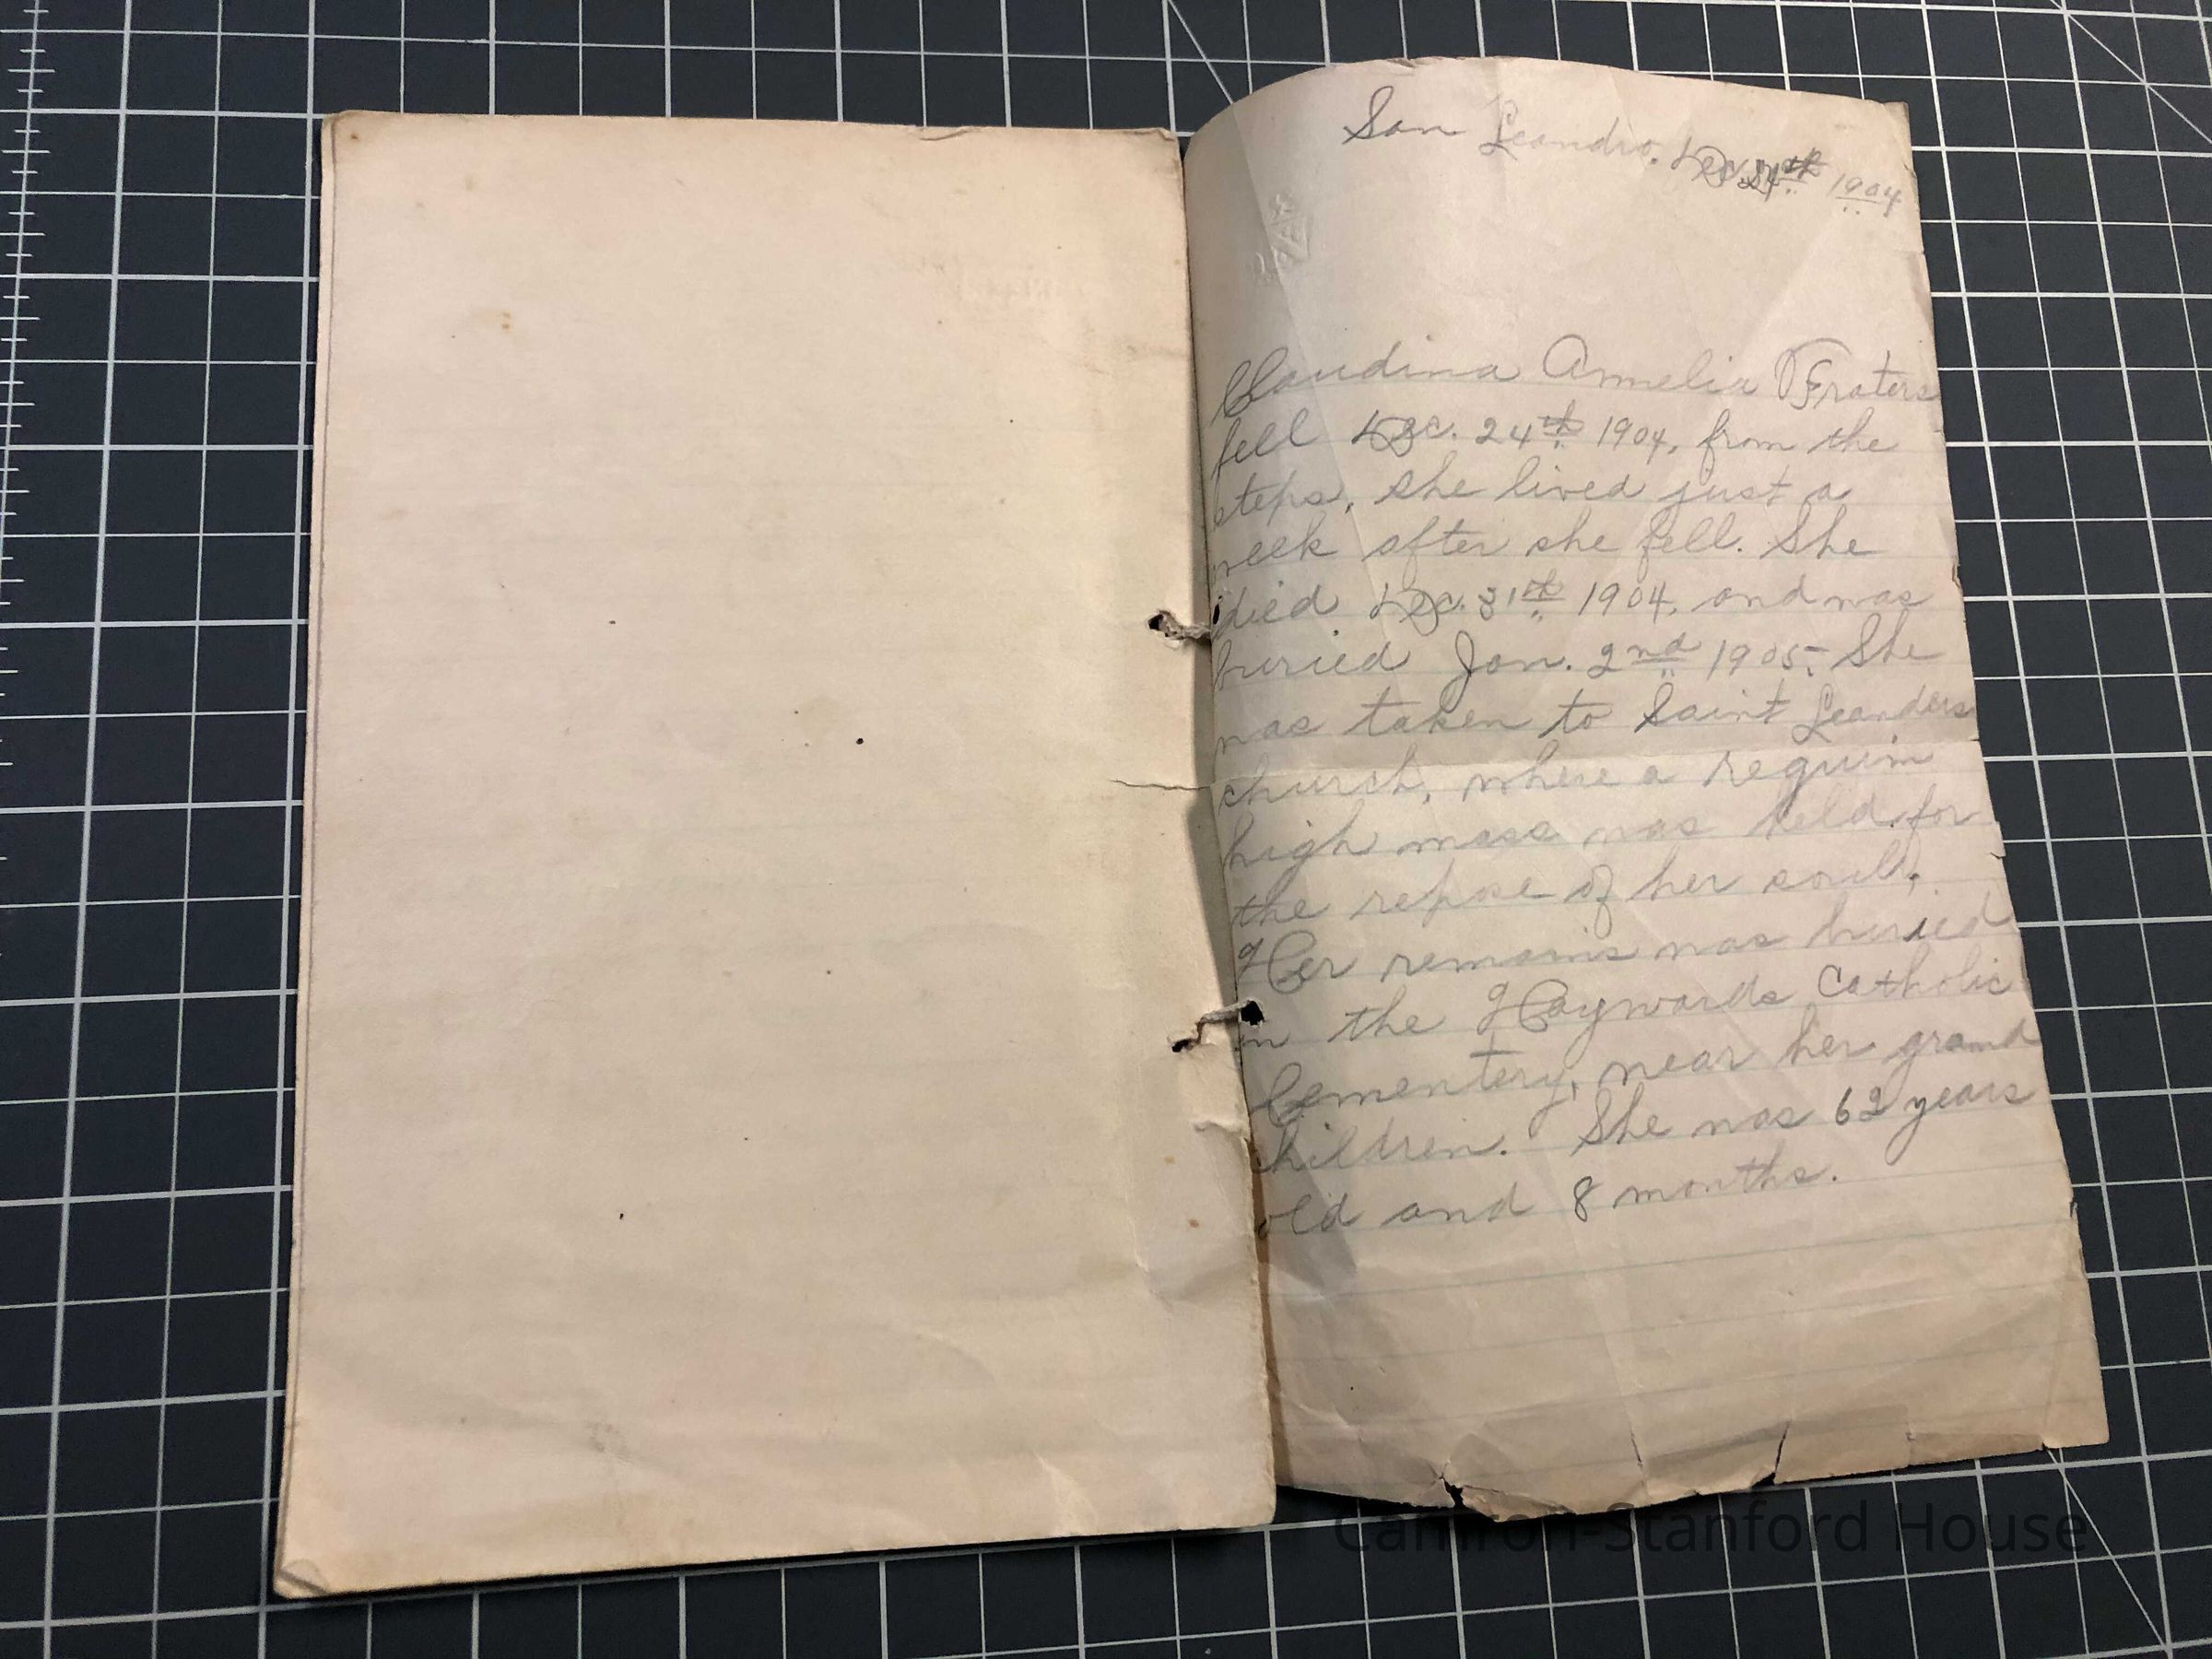 San Leandro, Dec. 24th 1904
Claudina Ammelia Fraters
fell Dec. 24th 1904, from the
steps, she lived just a
week after she fell. She
died Dec. 31th 1904, and was
buried Jan. 2nd 1905. She
was taken to Saint Leanders
church, where a requim
high mass was held for
the repose of her soul,
Her remains was buried
in the Haywards Catholic
Cementery, near her grand
children. She was 62 years
old and 8 months.
Camron-Stanford House